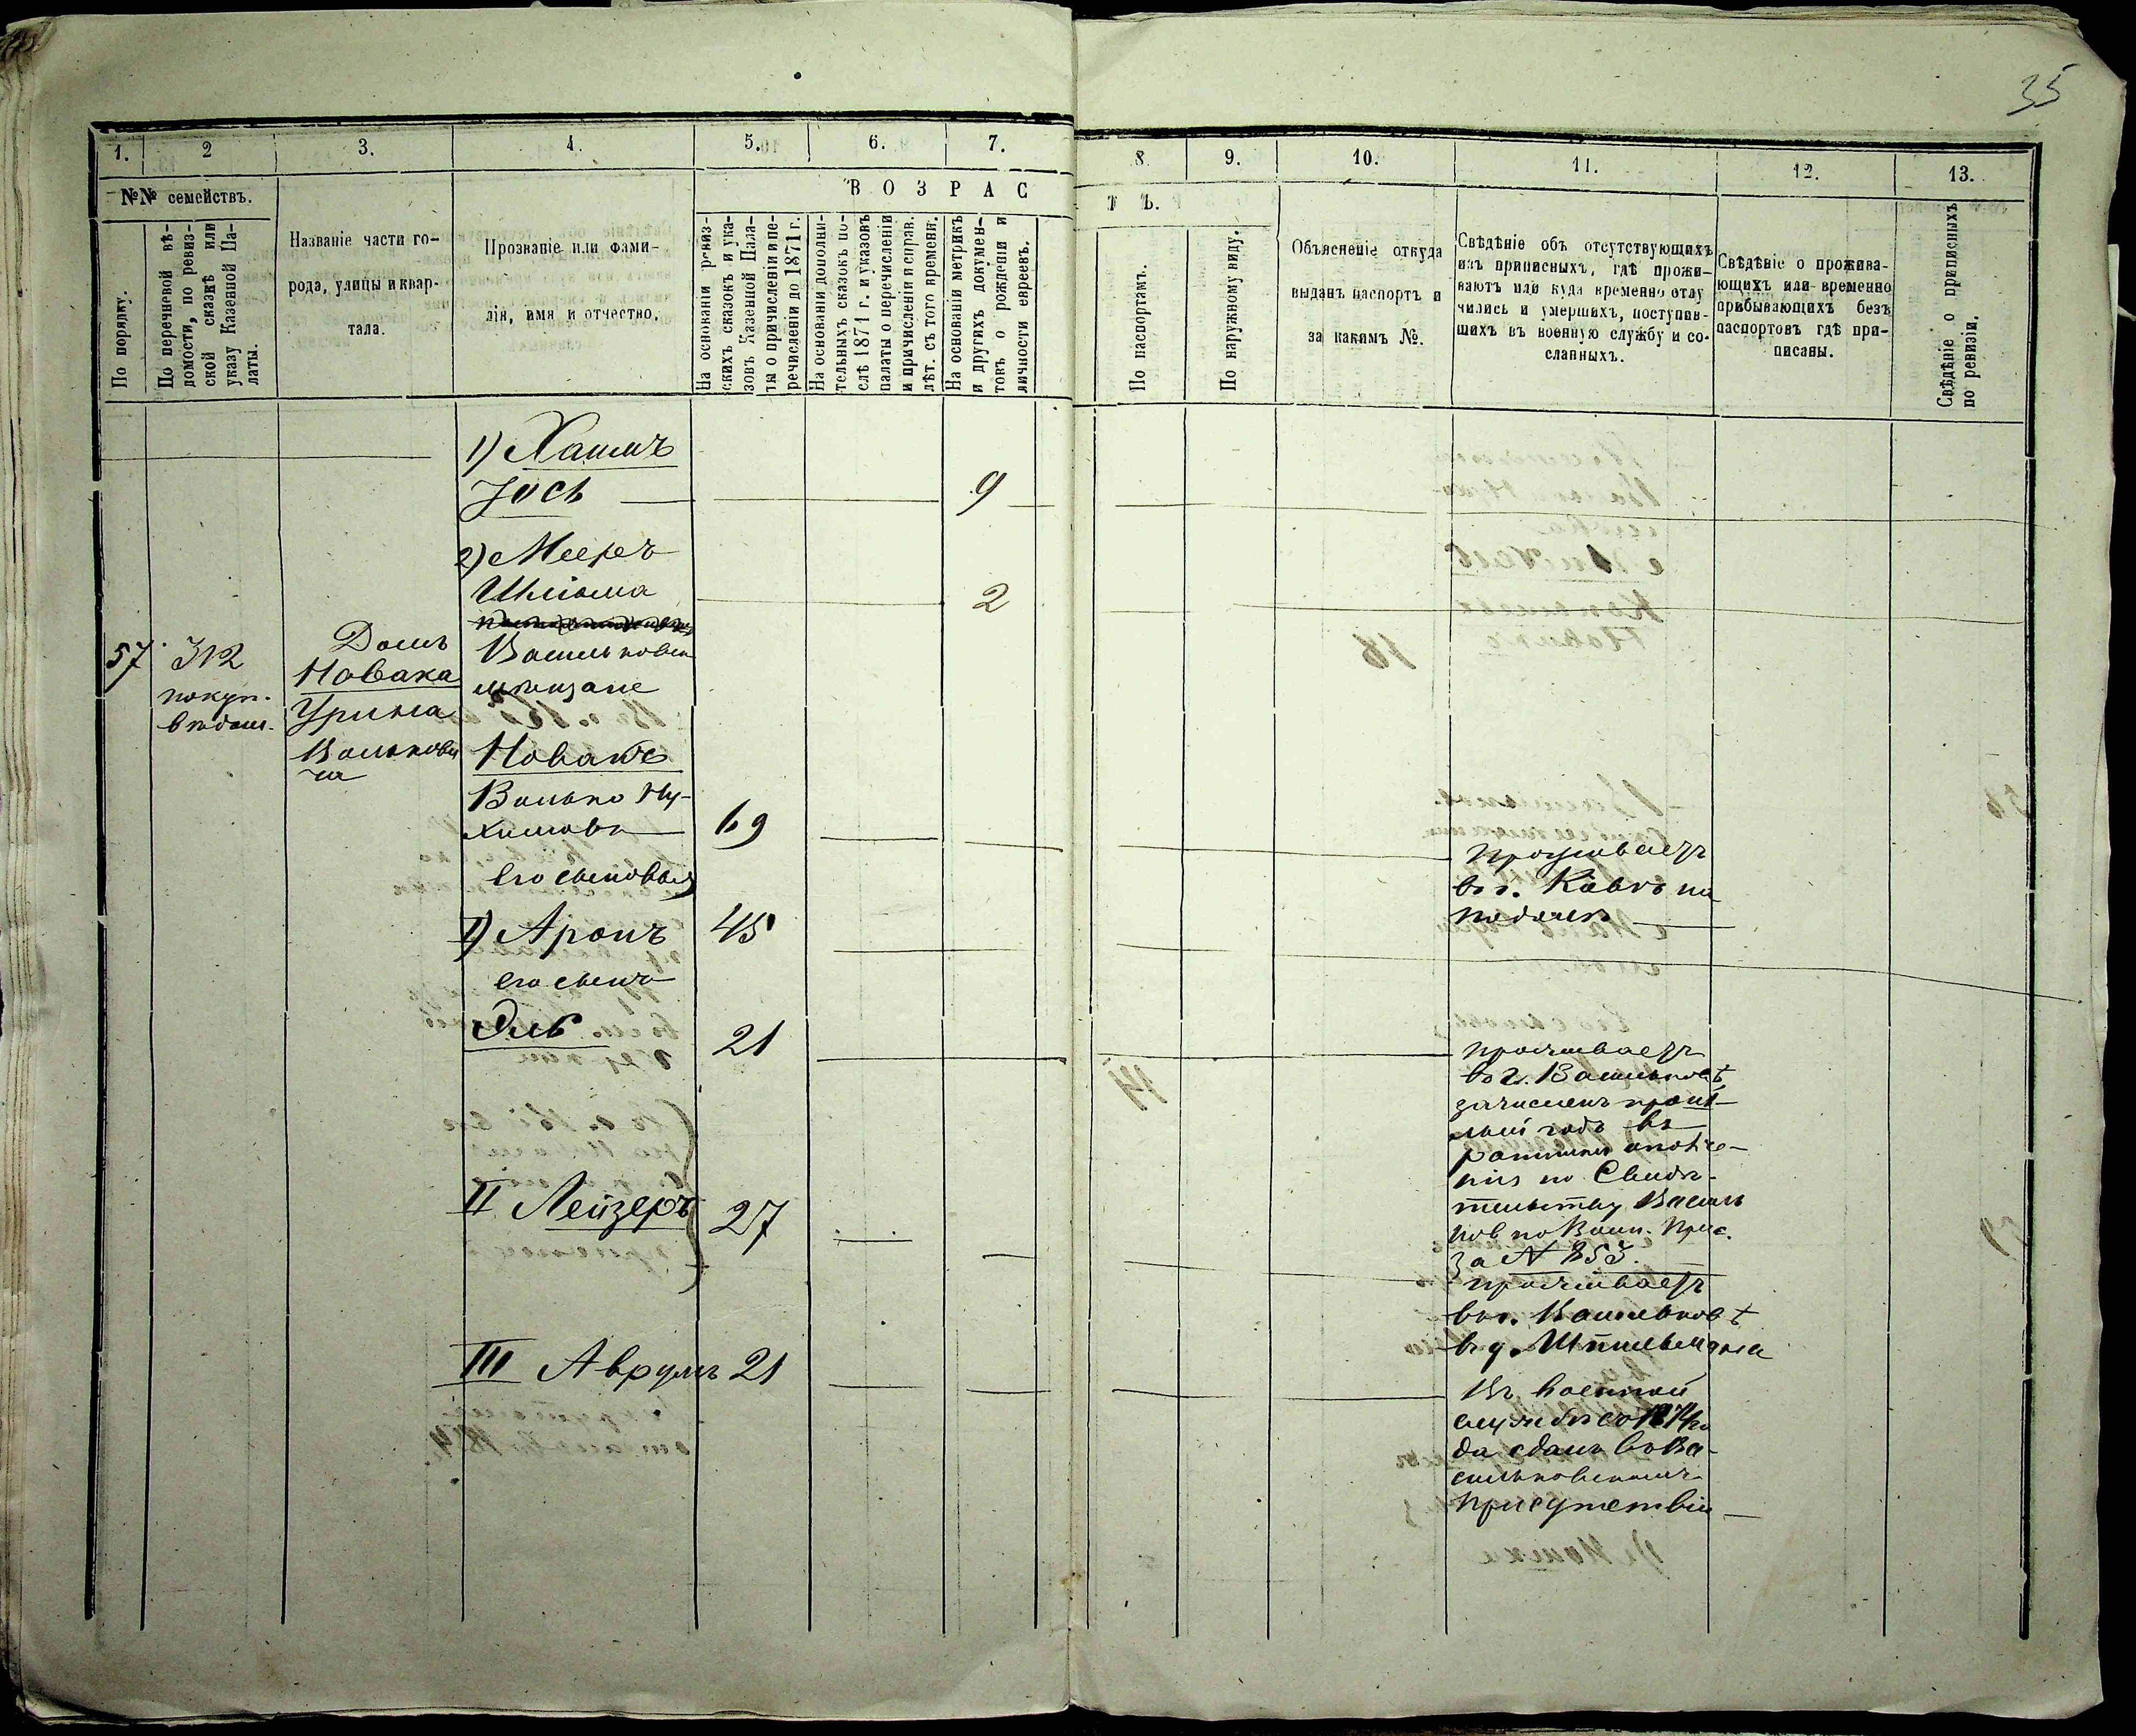 35
1.
2
3.
4.
5.
6.
7.
8.
9.
10.
11.
12.
13.
№№ семействъ.
ВОЗРАС
ТЪ.
По порядку.
По перечневой вѣ-
домости, по ревиз-
ской сказкѣ или
указу Казенной Па-
латы.
Названіе части го-
рода, улицы и квар-
тала.
Прозваніе или фами-
лія, имя и отчество.
На основаніи ревиз-
скихъ сказокъ и ука-
зовъ Казенной Пала-
ты о причисленіи и пе-
речисленіи до 1871 г.
На основаніи дополни-
тельныхъ сказокъ по-
слѣ 1871 г. и указовъ
палаты о перечисленіи
и причисленіи и справ.
лѣт. съ того времени.
На основаніи метрикъ
и другихъ докумен-
товъ о рожденіи и
личности евреевъ.
По паспортамъ.
По наружному виду.
Объясненіе откуда
выданъ паспортъ и
за какимъ №.
Свѣдѣніе объ отсутствующихъ
изъ приписныхъ, гдѣ прожи-
ваютъ или куда временно отлу
чились и умершихъ, поступив-
шихъ въ военную службу и со-
сланныхъ.
Свѣдѣніе о прожива-
ющихъ или временно
прибывающихъ безъ
паспортовъ гдѣ при-
писаны.
Свѣдѣніе о приписныхъ
по ревизіи.
1) Хаимъ
Іось
9
2) Мееръ
Шлiома
2
57
312
покуп.
вѣдом.
Домъ
Новака
Урина
Волькови
ча
Васильковск
мѣщане
Новакъ
Волько Ну-
химовъ
69
Его сыновья
I) Аронъ
45
проживаетъ
въ г. Кіевѣ на
Подолѣ
его сынъ
Эль
21
проживаетъ
въ г. Васильковѣ
зачисленъ прош-
лый годъ въ
ратники ополче-
нія по Свидѣ-
тельству Василь
ков по Воин. Прис.
за № 853.
II Лейзеръ
27
проживаетъ
въ г. Васильковѣ
въ д. Шпильмана
III Аврумъ
21
Въ военной
службѣ со 1874 го
да сданъ въ Ва-
сильковскомъ
присутствіи